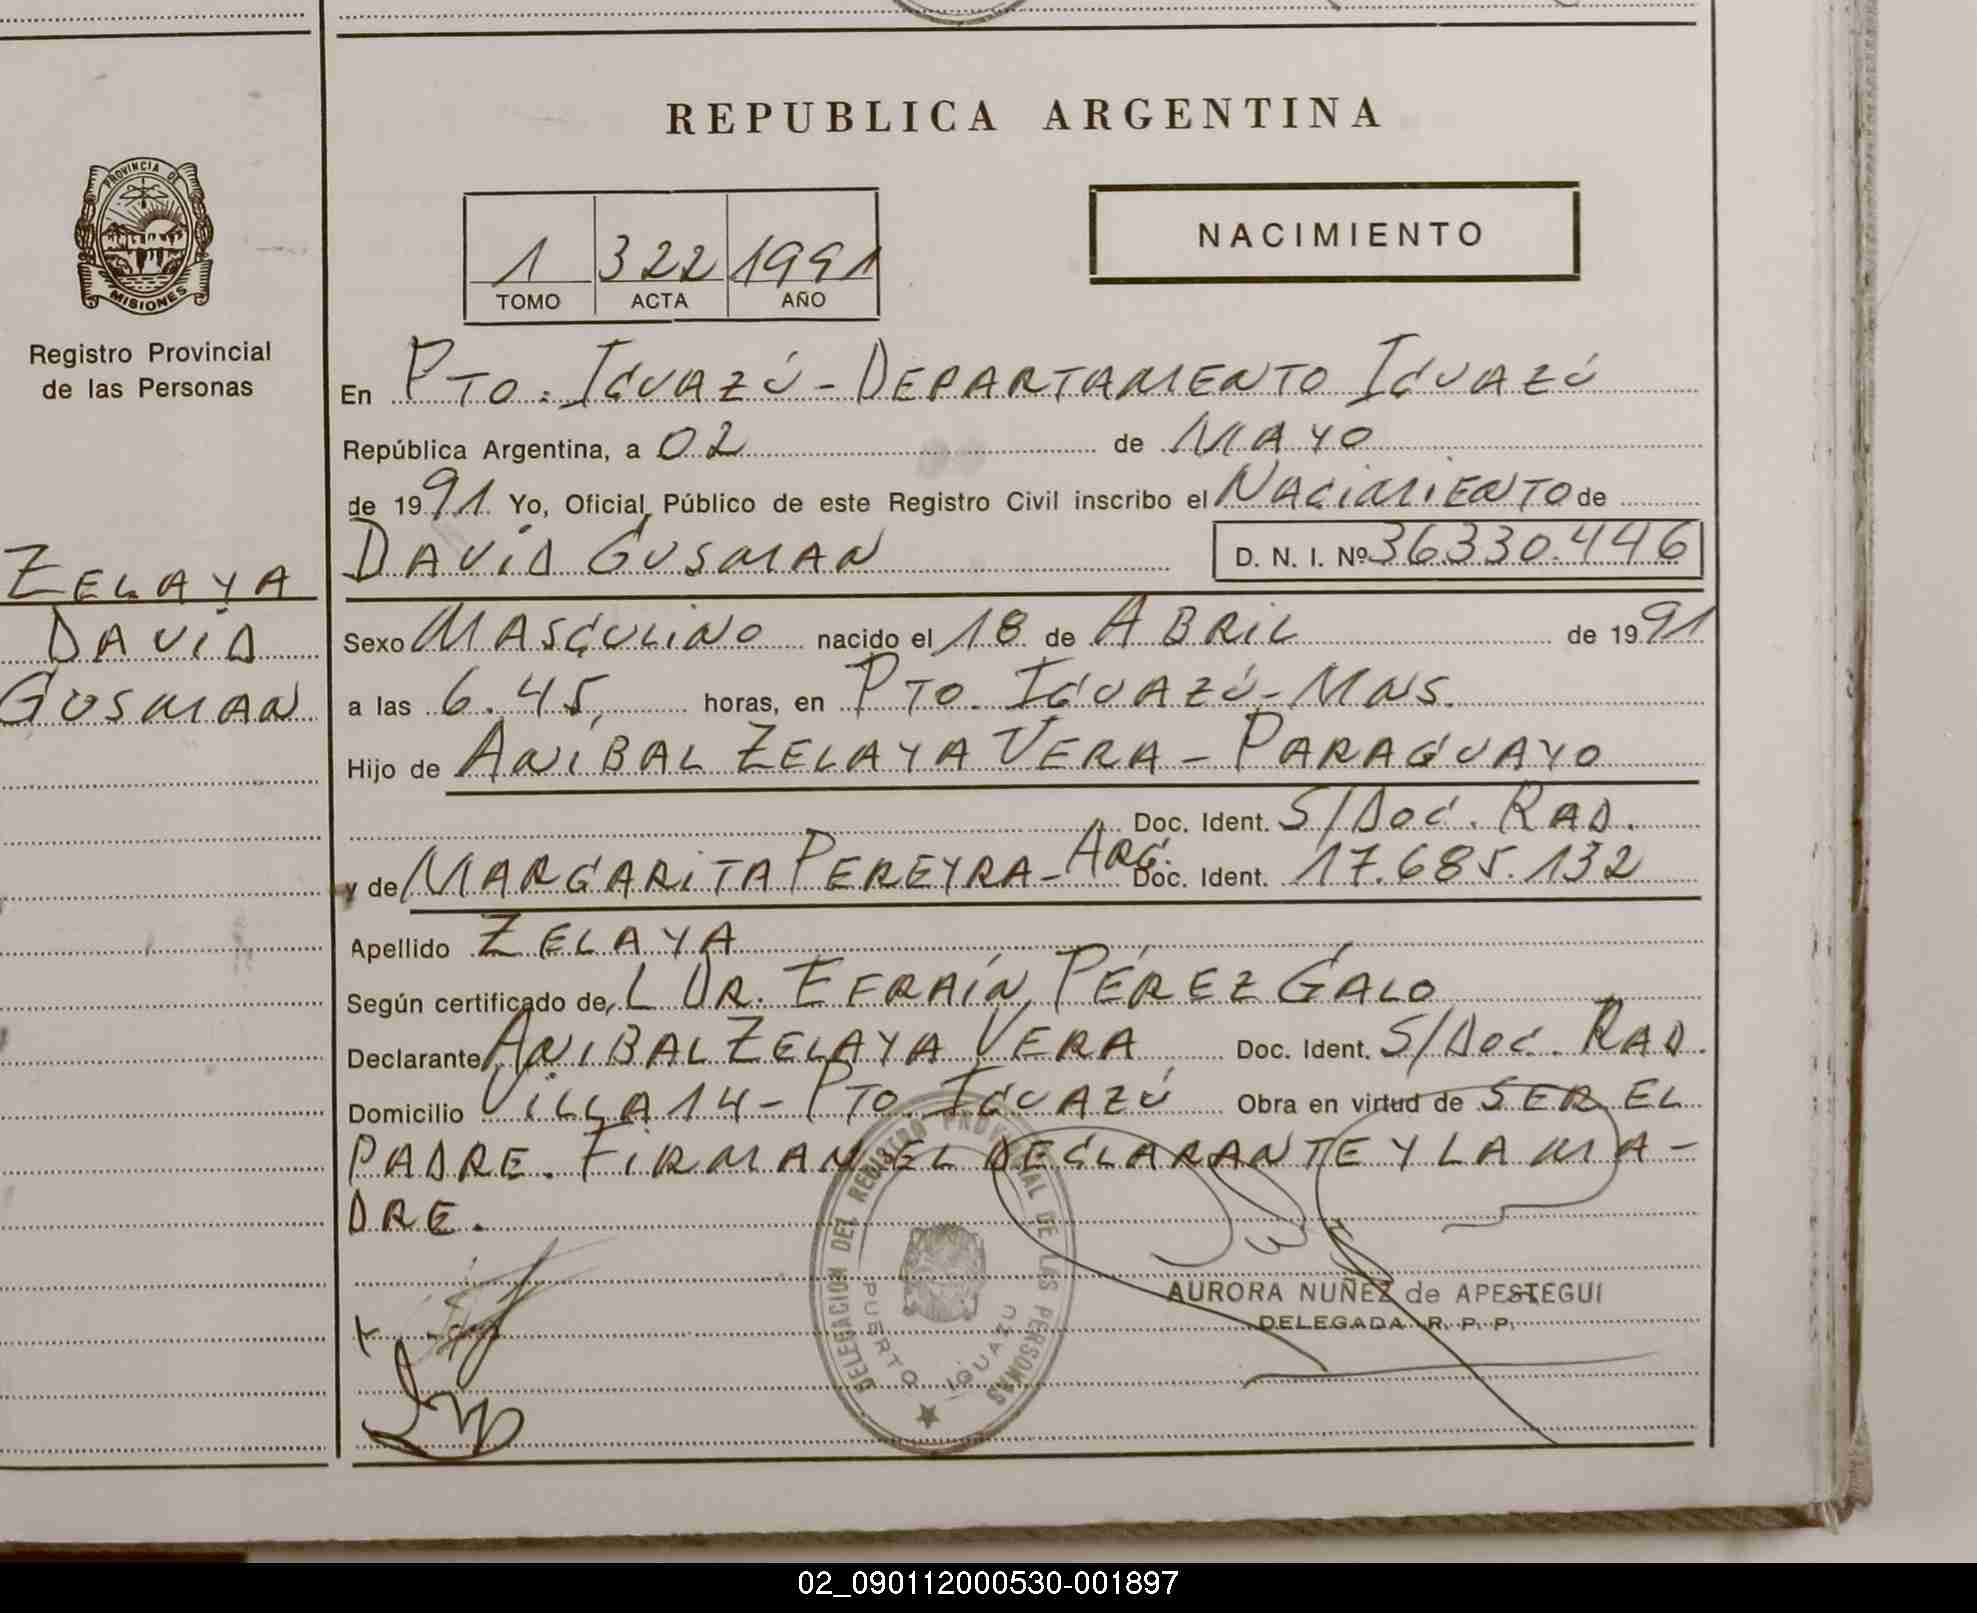 REPUBLICA ARGENTINA
PROVINCIA DE
MISIONES
Registro Provincial
de las Personas
ZELAYA
DAVID
GUSMAN
1 322 1991
TOMO ACTA AÑO
NACIMIENTO
En PTO. IGUAZÚ - DEPARTAMENTO IGUAZÚ
República Argentina, a 02 de MAYO
de 1991 Yo, Oficial Público de este Registro Civil inscribo el NACIMIENTO de
DAVID GUSMAN D. N. I. Nº 36.330.446
Sexo MASCULINO nacido el 18 de ABRIL de 1991
a las 6.45, horas, en PTO. IGUAZÚ - MNS.
Hijo de ANIBAL ZELAYA VERA - PARAGUAYO
Doc. Ident. S/Doc. RAD.
y de MARGARITA PEREYRA - ARG. Doc. Ident. 17.685.132
Apellido ZELAYA
Según certificado de L DR. EFRAÍN PÉREZ GALO
Declarante ANIBAL ZELAYA VERA Doc. Ident. S/Doc. RAD.
Domicilio VILLA 14 - PTO. IGUAZÚ Obra en virtud de SER EL
PADRE. FIRMAN EL DECLARANTE Y LA MA-
DRE.
DELEGACION DEL REGISTRO PROVINCIAL DE LAS PERSONAS
PUERTO IGUAZU
AURORA NUÑEZ de APESTEGUI
DELEGADA R. P. P.
02_090112000530-001897